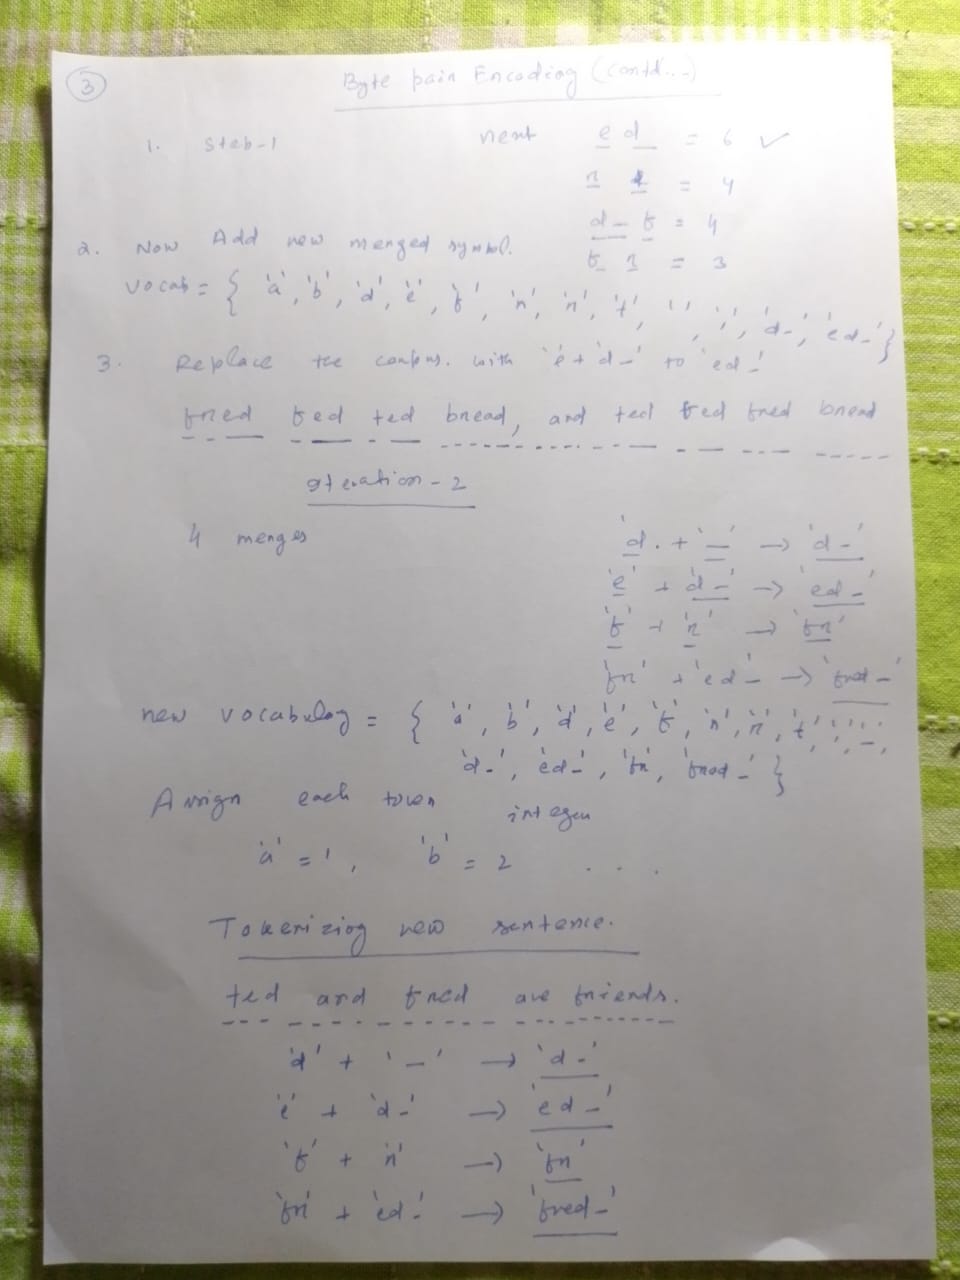 3
Byte pair Encoding (contd...)
1. Step-1 next e d_ = 6 ✓
r e = 4
d_ f = 4
2. Now Add new merged symbol.
vocab = { 'a', 'b', 'd', 'e', 'f', 'n', 'r', 't', ' ', ',', 'd_', 'ed_' }
3. Replace the corpus. with 'e' + 'd_' to 'ed_'
fred fed ted bread, and ted fed fred bread
Iteration - 2
4 merges
'd' + '_' → 'd_'
'e' + 'd_' → 'ed_'
'f' + 'r' → 'fr'
'fr' + 'ed_' → 'fred_'
new vocabulary = { 'a', 'b', 'd', 'e', 'f', 'n', 'r', 't', ',', '_',
'd_', 'ed_', 'fr', 'fred_' }
Assign each token integer
'a' = 1, 'b' = 2 . . .
Tokenizing new sentence.
ted and fred are friends.
'd' + '_' → 'd_'
'e' + 'd_' → 'ed_'
'f' + 'r' → 'fr'
'fr' + 'ed_' → 'fred_'